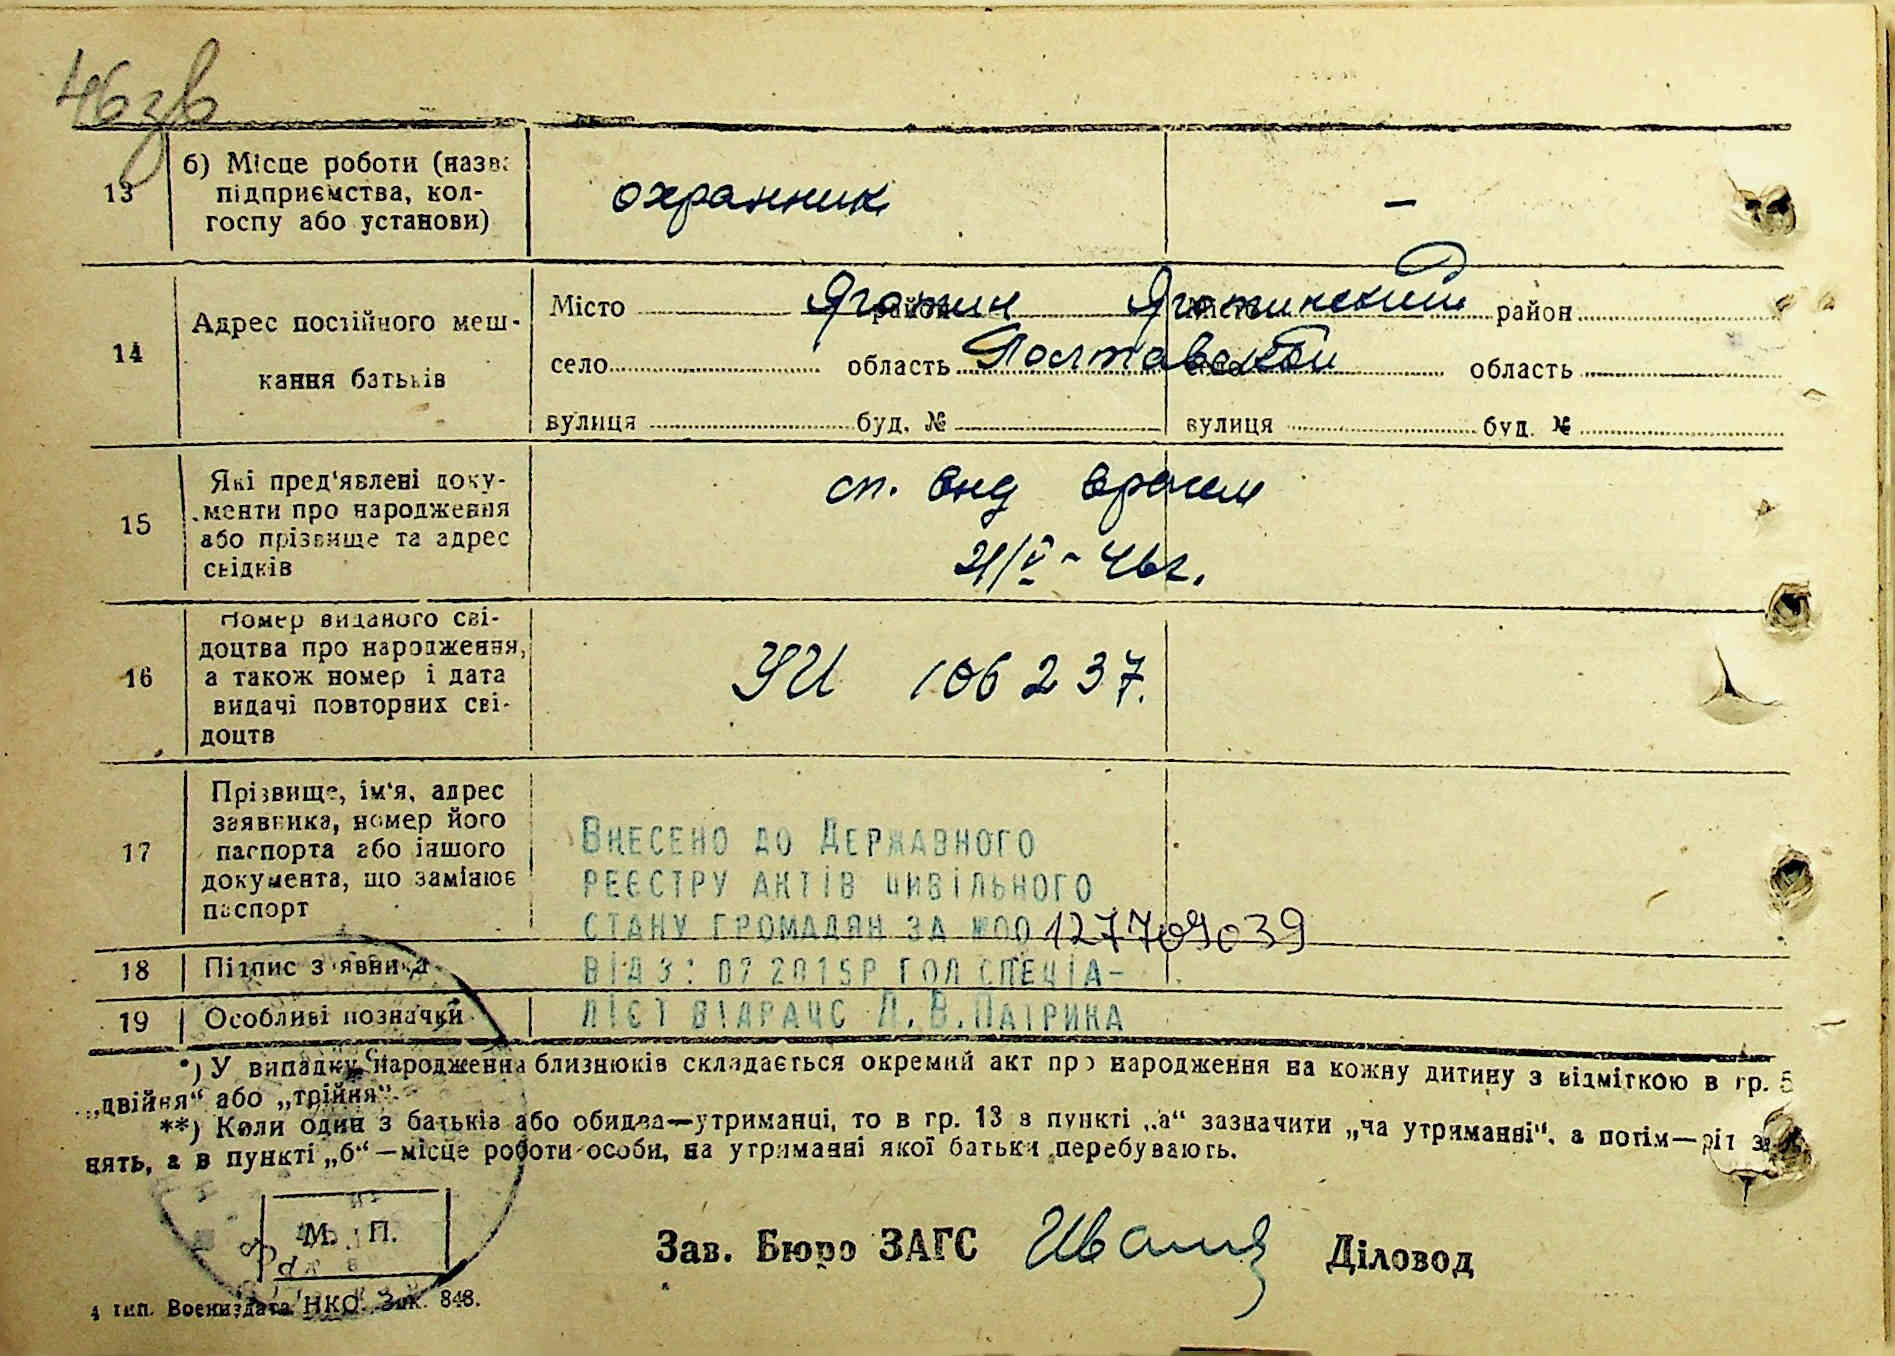 46
13
б) Місце роботи (назва
підприємства, кол-
госпу або установи)
охранник
–
14
Адрес постійного меш-
кання батьків
Місто Яготин район Яготинский район
село область Полтавской область
вулиця буд. № вулиця буд. №
15
Які пред'явлені доку-
менти про народження
або прізвище та адрес
свідків
сп.
21/V - 46г.
16
Номер виданого сві-
доцтва про народження,
а також номер і дата
видачі повторних сві-
доцтв
УИ 106237.
17
Прізвище, ім'я, адрес
заявника, номер його
паспорта або іншого
документа, що замінює
паспорт
Внесено до Державного
реєстру актів цивільного
стану громадян за №00127709039
18
Підпис заявника
від 07 2015р гол спеціа-
19
Особливі позначки
ліст відрацс Л.В.Патрика
*) У випадку народження близнюків складається окремий акт про народження на кожну дитину з відміткою в гр. 5
„двійня“ або „трійня“.
**) Коли один з батьків або обидва—утриманці, то в гр. 13 в пункті „а“ зазначити „на утриманні“, а потім—рід за-
нять, а в пункті „б“—місце роботи особи, на утриманні якої батьки перебувають.
М. П.
Зав. Бюро ЗАГС
Діловод
4 тип. Воениздата НКО. Зак. 848.